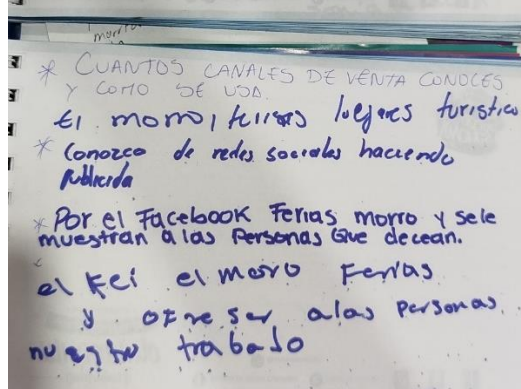 * CUANTOS CANALES DE VENTA CONOCES
Y COMO SE USA.
El morro, ferias lugares turistico
* Conozco de redes sociales haciendo
Publicida
* Por el Facebook Ferias morro y sele
muestran a las Personas Que decean.
el Fei el moro Ferias
y ofreser alas Personas
nuestro trabado